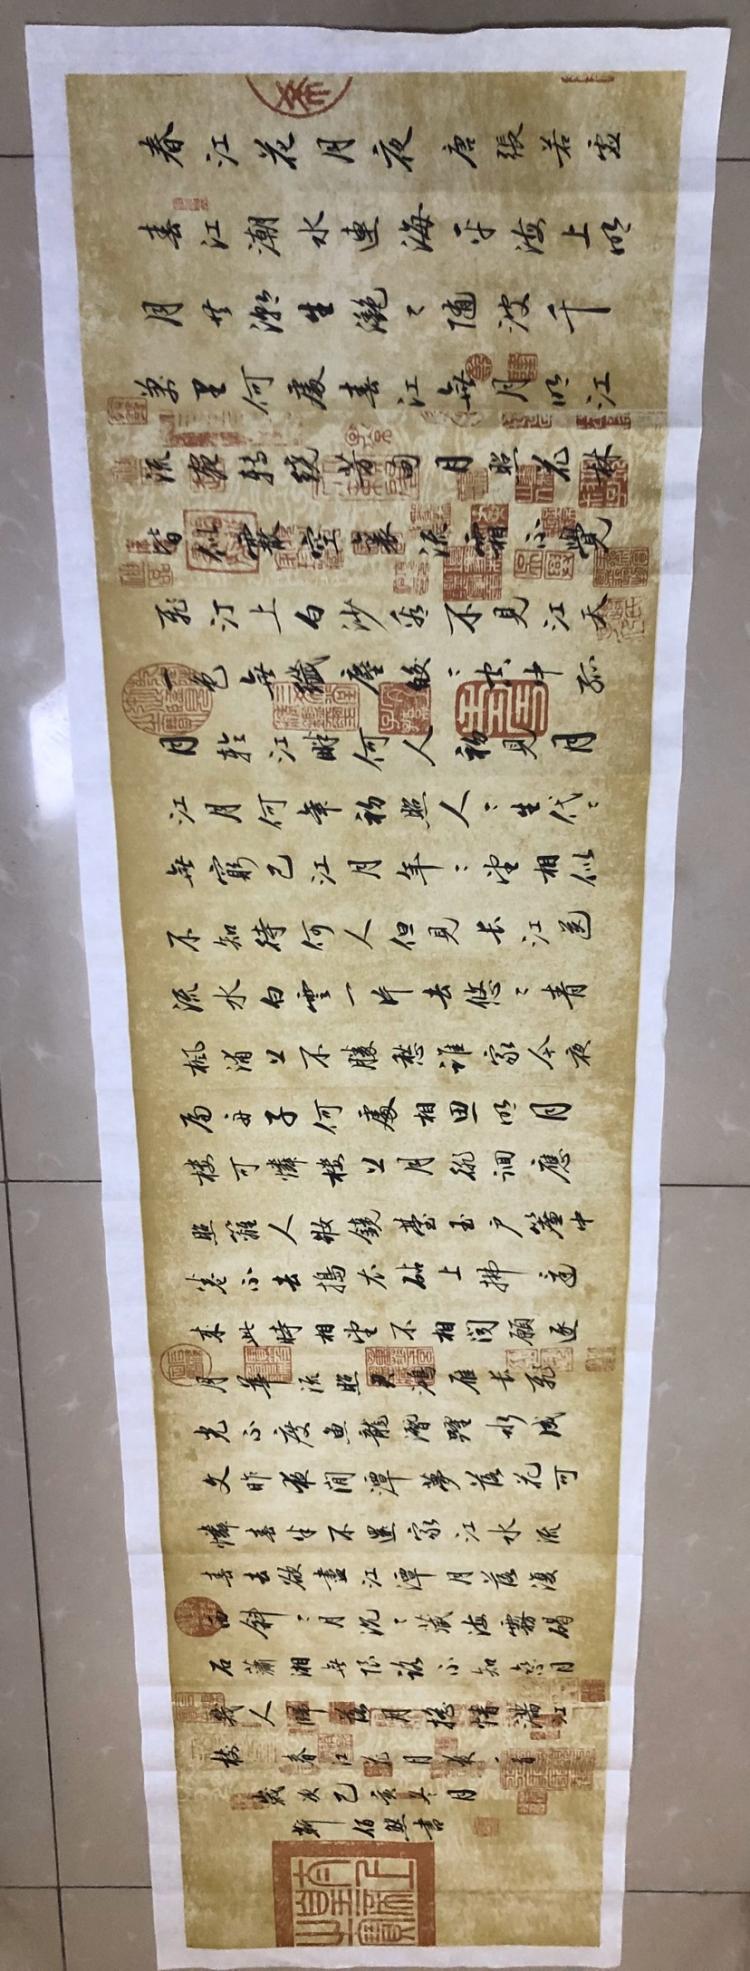 春江花月夜 唐 張若虛
春江潮水連海平海上明
月共潮生灩〻随波千
萬里何處春江無月明江
流宛轉繞芳甸月照花林
皆似霰空裏流霜不覺
飛汀上白沙看不見江天
一色無纖塵皎〻空中孤
月輪江畔何人初見月
江月何年初照人〻生代〻
無窮已江月年〻望相似
不知待何人但見長江送
流水白雲一片去悠〻青
楓浦上不勝愁誰家今夜
扁舟子何處相思明月
樓可憐樓上月徘徊應
照離人妝鏡臺玉戶簾中
卷不去搗衣砧上拂還
來此時相望不相聞願逐
月華流照君鴻雁長飛
光不度魚龍潛躍水成
文昨夜閒潭夢落花可
憐春半不還家江水流
春去欲盡江潭月落復
西斜〻月沉〻藏海霧碣
石瀟湘無限路不知乘月
幾人歸落月搖情滿江
樹 春江花月夜一首
歲次己亥月
書